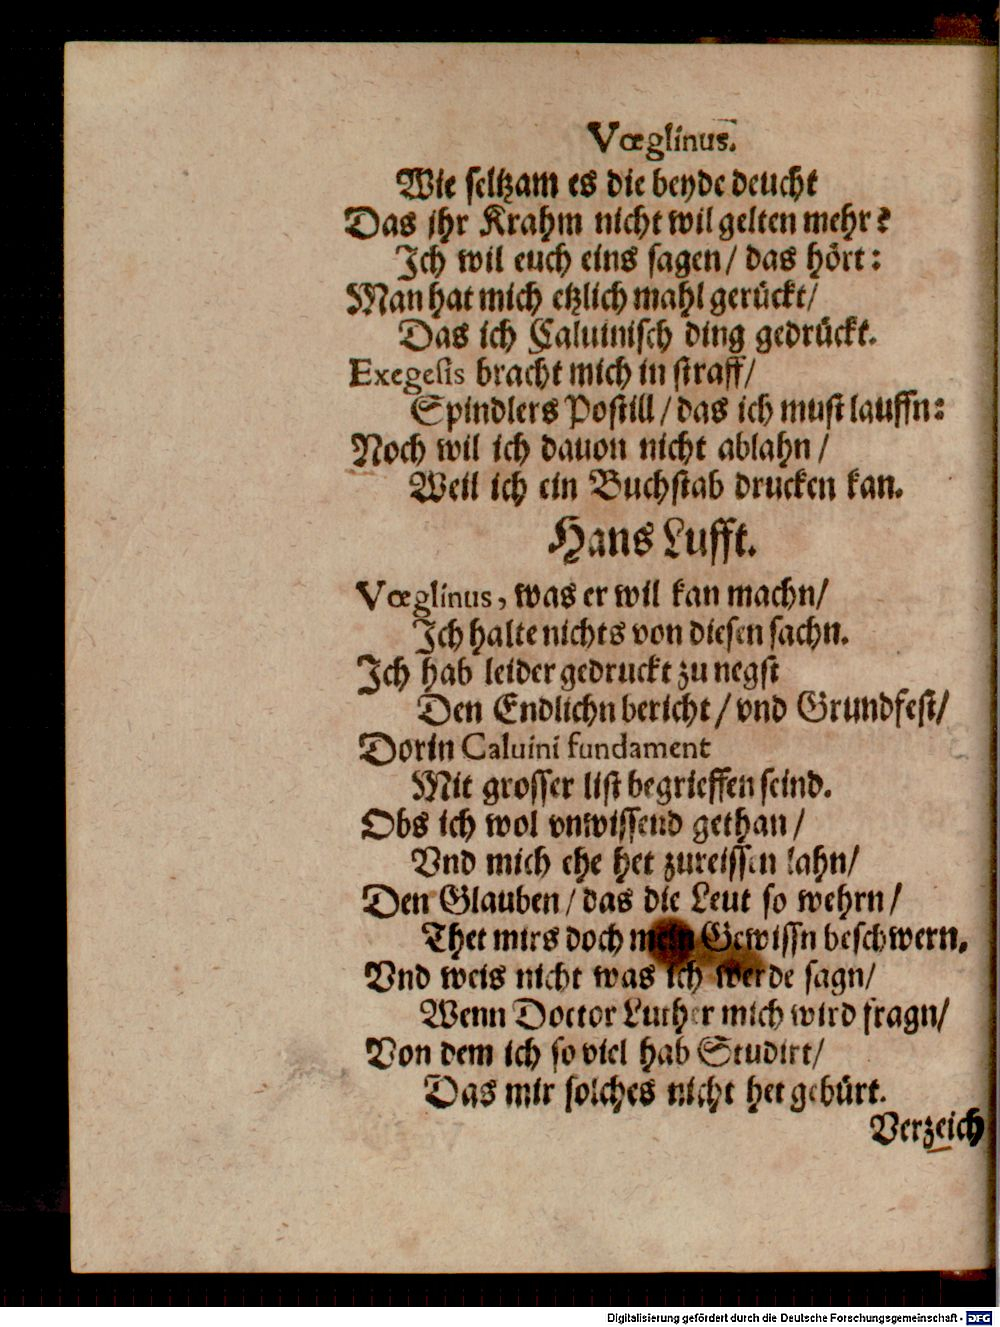 Vœglinus.
Wie seltzam es die beyde deucht
Das jhr Krahm nicht wil gelten mehr?
Ich wil euch eins sagen/ das hört:
Man hat mich etzlich mahl gerückt/
Das ich Caluinisch ding gedrückt.
Exegesis bracht mich in straff/
Spindlers Postill/ das ich must lauffn:
Noch wil ich dauon nicht ablahn/
Weil ich ein Buchstab drucken kan.
Hans Lufft.
Vœglinus, was er wil kan machn/
Ich halte nichts von diesen sachn.
Ich hab leider gedruckt zu negst
Den Endlichn bericht/ vnd Grundfest/
Dorin Caluini fundament
Mit grosser list begrieffen seind.
Obs ich wol vnwissend gethan/
Vnd mich ehe het zureissen lahn/
Den Glauben/ das die Leut so wehrn/
Thet mirs doch mein Gewissn beschwern.
Vnd weis nicht was ich werde sagn/
Wenn Doctor Luther mich wird fragn/
Von dem ich so viel hab Studirt/
Das mir solches nicht het gebürt.
Verzeich
Digitalisierung gefördert durch die Deutsche Forschungsgemeinschaft - DFG